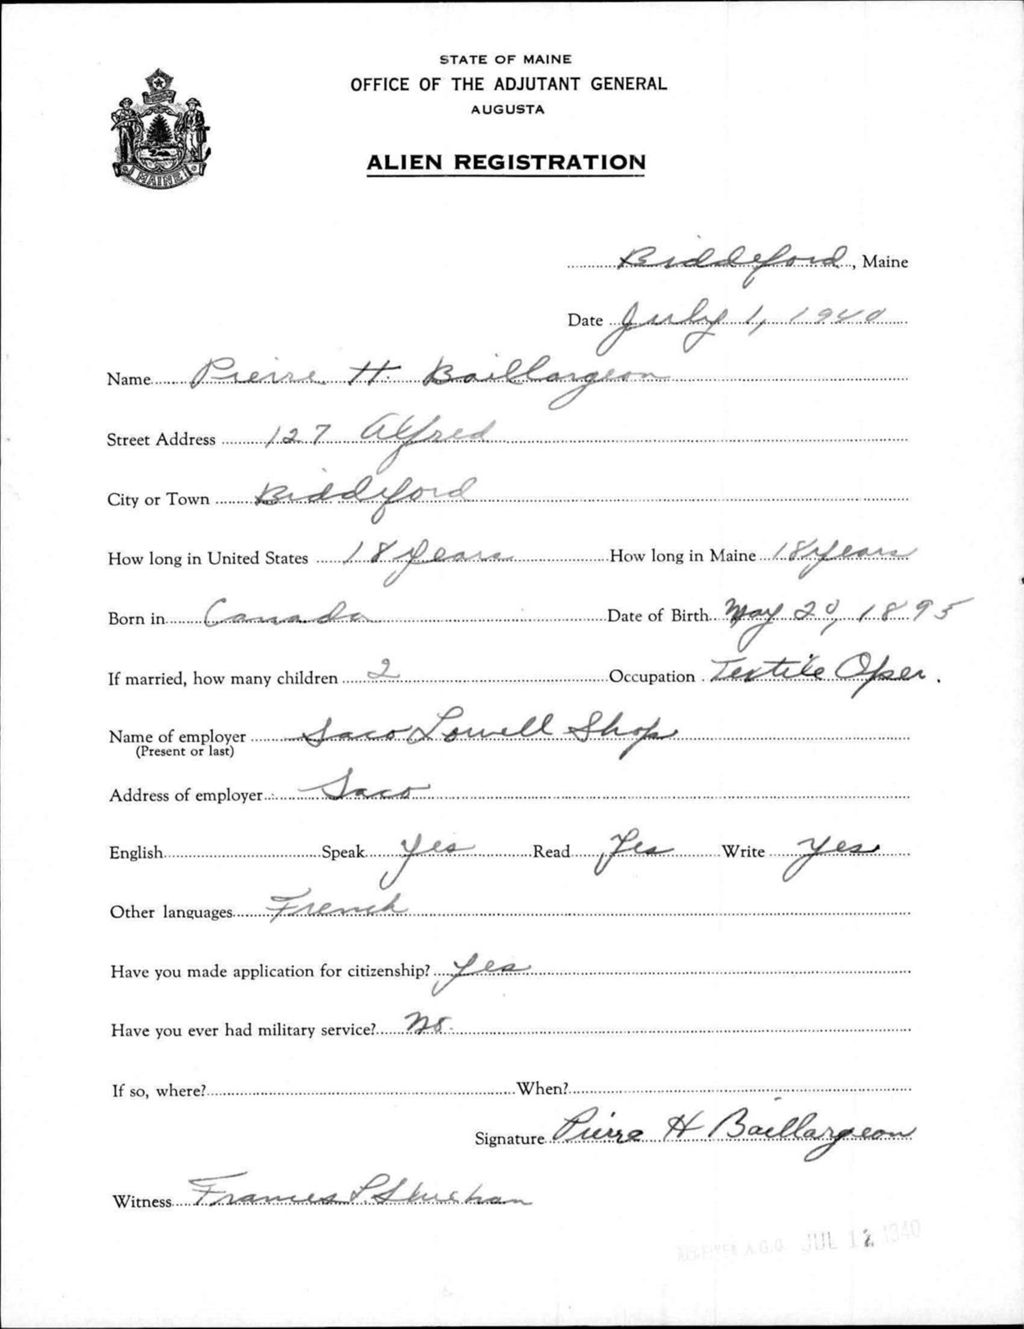 STATE OF MAINE
OFFICE OF THE ADJUTANT GENERAL
AUGUSTA
ALIEN REGISTRATION
MAINE
Biddeford, Maine
Date July 1, 1940
Name Pierre H. Baillargeon
Street Address 127 Alfred
City or Town Biddeford
How long in United States 18 years How long in Maine 18 years
Born in Canada Date of Birth May 20, 1895
If married, how many children 2 Occupation Textile Oper.
Name of employer Saco Lowell Shop
(Present or last)
Address of employer Saco
English Speak Yes Read Yes Write Yes
Other languages French
Have you made application for citizenship? Yes
Have you ever had military service? No.
If so, where? When?
Signature Pierre H Baillargeon
Witness
A.G.O. JUL 12 1940